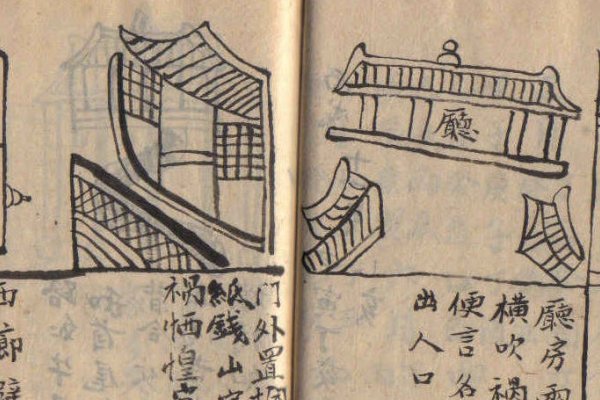 廳
廳房兩
橫吹禍
便言名
出人口
門外置
紙錢山
禍栖惶
廊